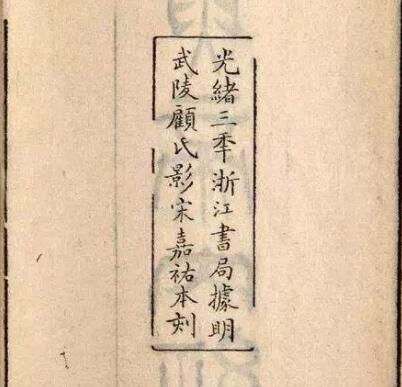 光緒三年浙江書局據明
武陵顧氏影宋嘉祐本刻